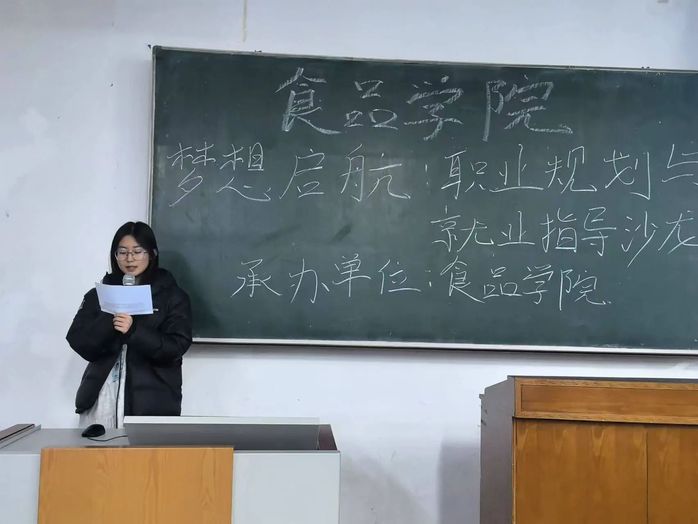 食品学院
梦想启航:职业规划与
就业指导沙龙
承办单位:食品学院